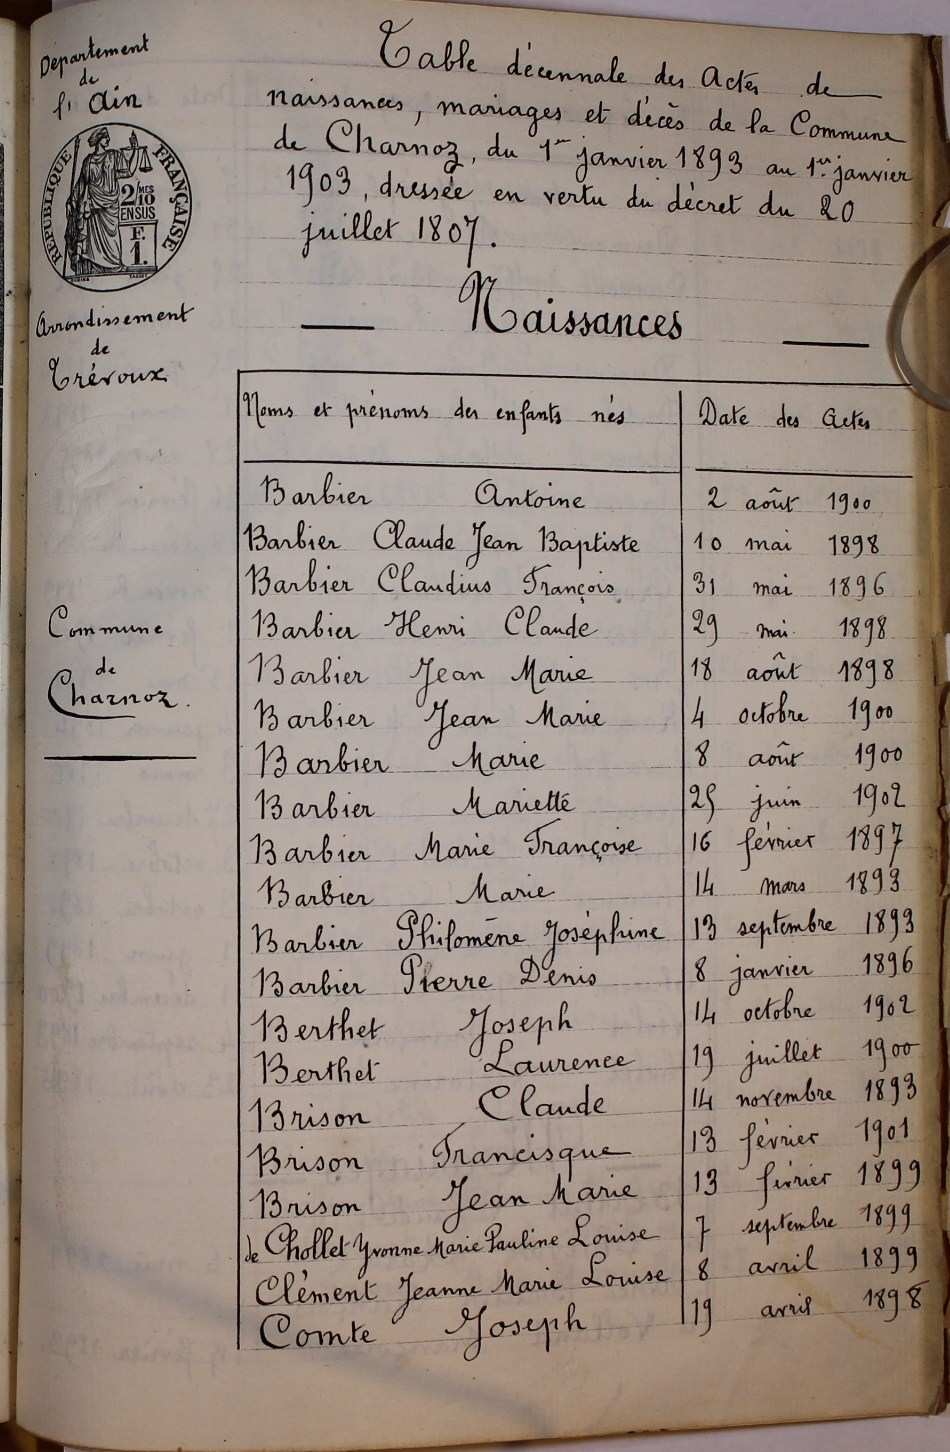 Département
de
l'Ain
RÉPUBLIQUE FRANÇAISE
2/10 MES
EN SUS
F.
1.
Arrondissement
de
Trévoux
Commune
de
Charnoz.
Table décennale des Actes de
naissances, mariages et décès de la Commune
de Charnoz, du 1er janvier 1893 au 1er janvier
1903, dressée en vertu du décret du 20
juillet 1807.
Naissances
Noms et prénoms des enfants nés Date des Actes
Barbier Antoine 2 août 1900
Barbier Claude Jean Baptiste 10 mai 1898
Barbier Claudius François 31 mai 1896
Barbier Henri Claude 29 mai 1898
Barbier Jean Marie 18 août 1898
Barbier Jean Marie 4 octobre 1900
Barbier Marie 8 août 1900
Barbier Mariette 25 juin 1902
Barbier Marie Françoise 16 février 1897
Barbier Marie 14 mars 1893
Barbier Philomène Joséphine 13 septembre 1893
Barbier Pierre Denis 8 janvier 1896
Berthet Joseph 14 octobre 1902
Berthet Laurence 19 juillet 1900
Brison Claude 14 novembre 1893
Brison Francisque 13 février 1901
Brison Jean Marie 13 février 1899
de Chollet Yvonne Marie Pauline Louise 7 septembre 1899
Clément Jeanne Marie Louise 8 avril 1899
Comte Joseph 19 avril 1898